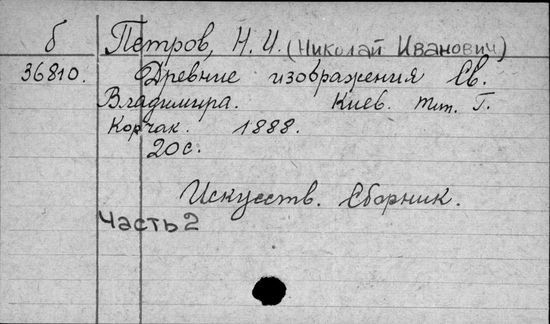 б Петров, Н. И. (Николай Иванович)
36810. Древние изображения Св.
Владимира. Киев. тип. Г.
Корчак. 1888.
20 с.
Искусств. Сборник.
Часть 2